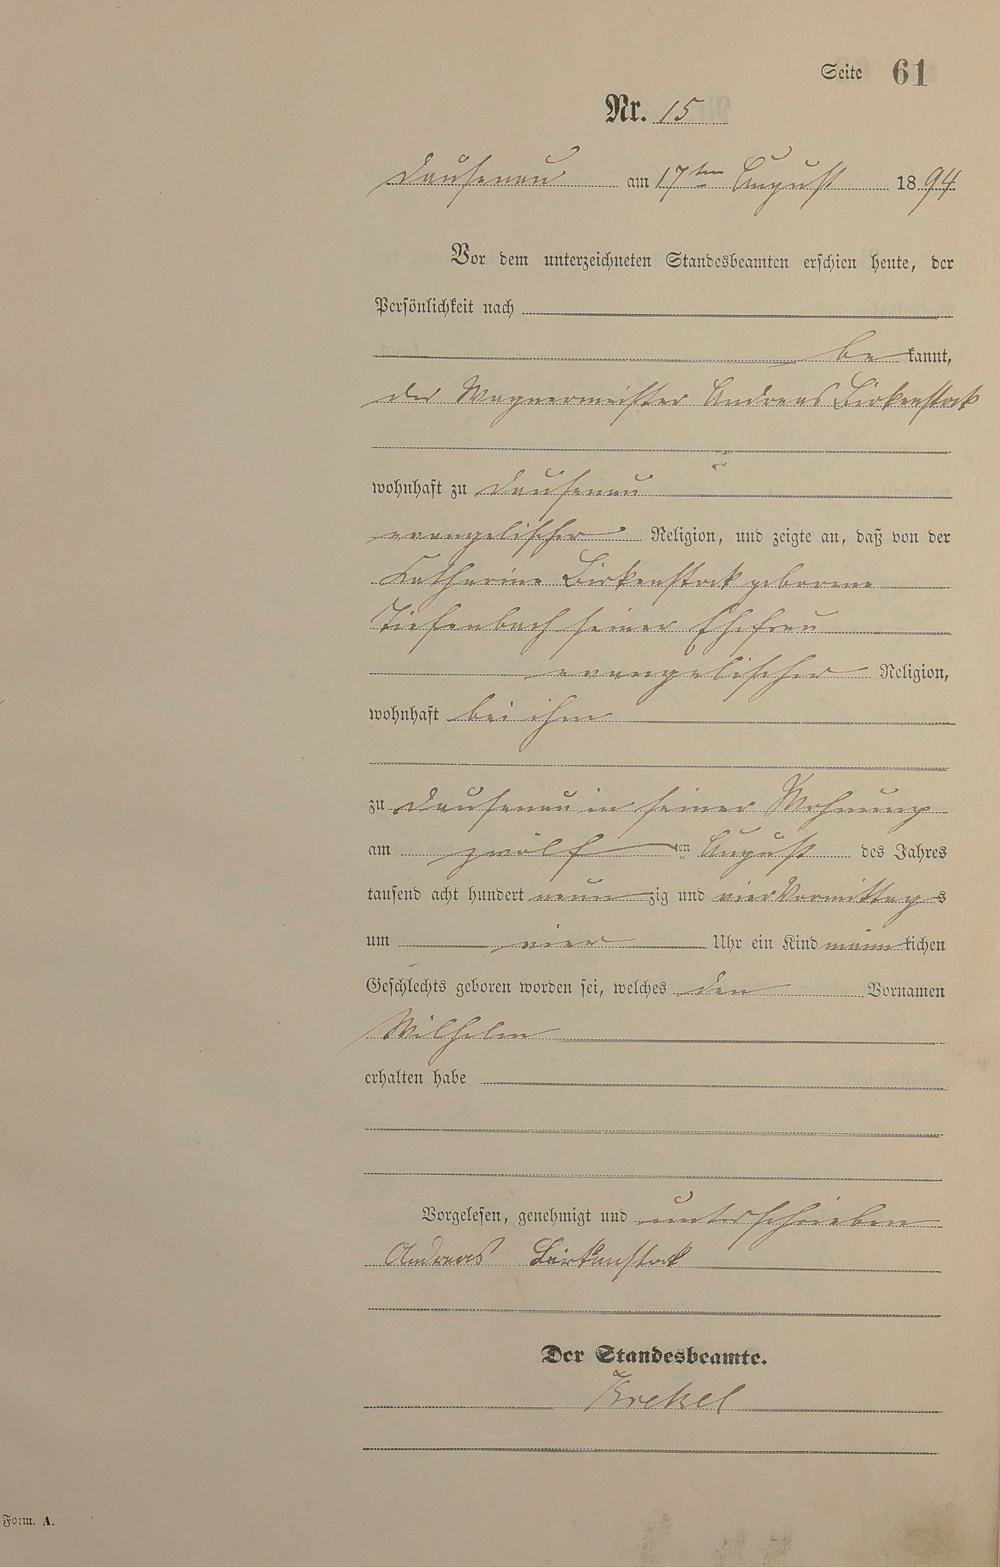 Seite 61
Nr. 15
Dausenau am 17ten August 1894
Vor dem unterzeichneten Standesbeamten erschien heute, der
Persönlichkeit nach
bekannt,
der Wagnermeister Andreas Birkenstock
wohnhaft zu Dausenau
evangelischer Religion, und zeigte an, daß von der
Katharine Birkenstock geborene
Tiefenbach seiner Ehefrau
evangelischer Religion,
wohnhaft bei ihm
zu Dausenau in seiner Wohnung
am zwölften August des Jahres
tausend acht hundert neunzig und vier Vormittags
um vier Uhr ein Kind männlichen
Geschlechts geboren worden sei, welches den Vornamen
Wilhelm
erhalten habe
Vorgelesen, genehmigt und unterschrieben
Andreas Birkenstock
Der Standesbeamte.
Krekel
Form. A.